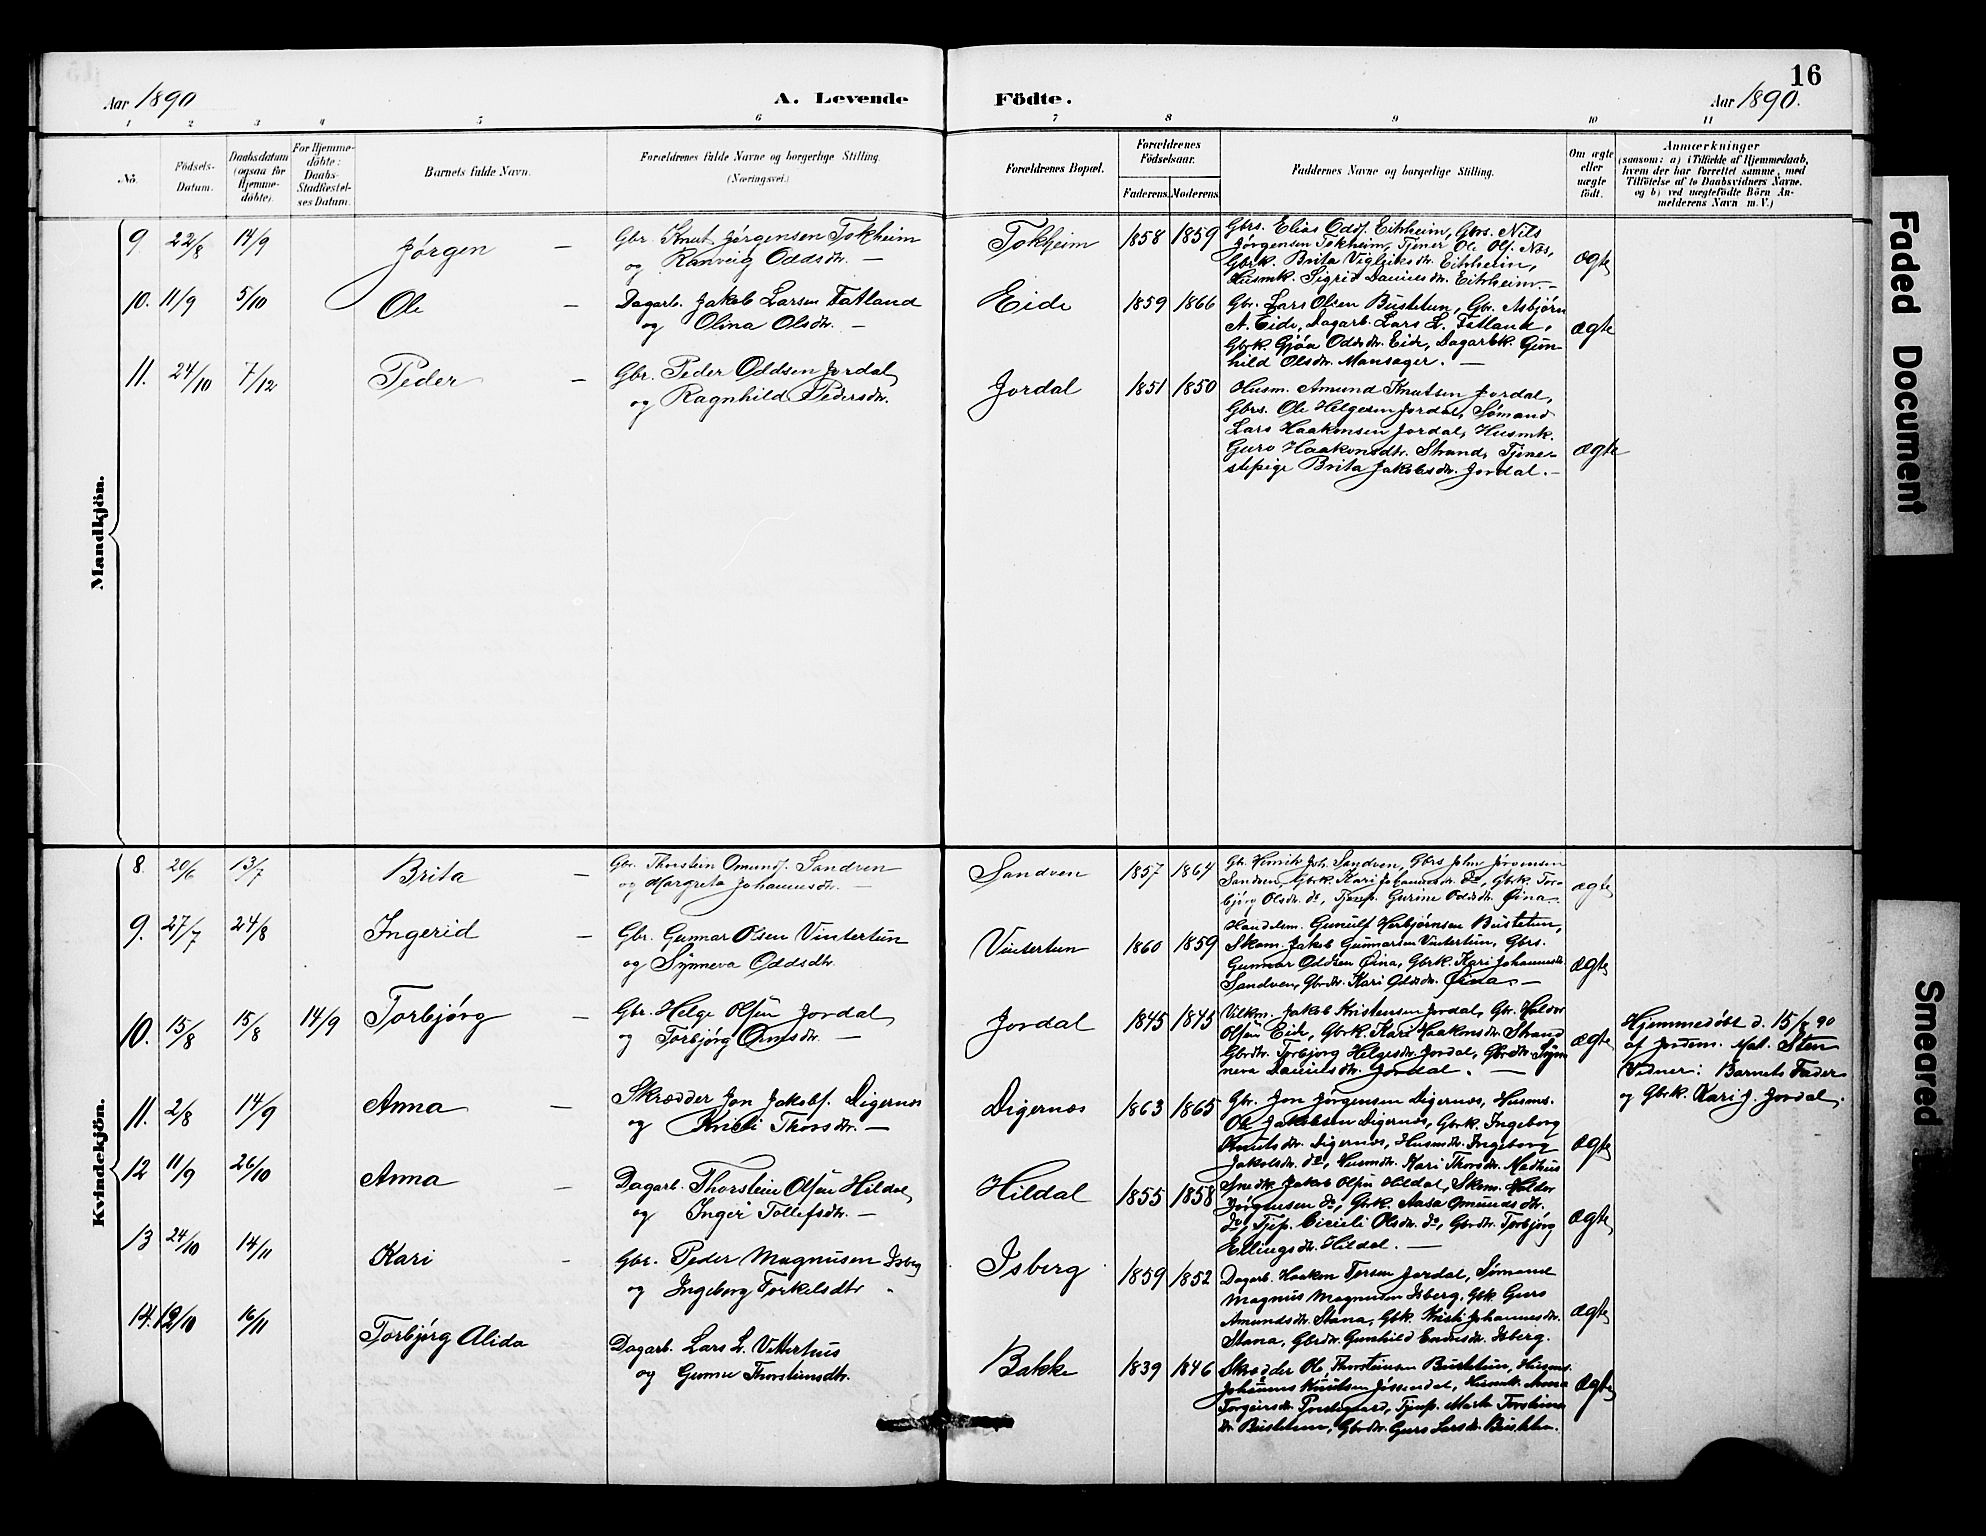 16
Aar 1890
A. Levende Födte.
Aar 1890.
1 2 3 4 5 6 7 8 9 10 11
No.
Födsels-Datum.
Daabsdatum (ogsaa for Hjemme-döbte).
For Hjemme-döbte: Daabs-Stadfæstel-ses Datum.
Barnets fulde Navn.
Forældrenes fulde Navne og borgerlige Stilling.
(Næringsvei.)
Forældrenes Bopæl.
Forældrenes Födselsaar.
Faderens. Moderens.
Faddernes Navne og borgerlige Stilling.
Om ægte eller uægte födt.
Anmærkninger
(saasom: a) i Tilfælde af Hjemmedaab,
hvem der har forrettet samme, med
Tilföielse af to Daabsvidners Navne.
og b) ved uægtefödte Börn An-
melderens Navn m. V.)
Mandkjön.
9 22/8 14/9 Jørgen —
Gbr. Knut Jørgensen Tokheim
og Ranveig Oddsdtr. —
Tokheim 1858 1859
Gbrs. Elias Odds. Eitrheim, Gbrs. Nils
Jørgensen Tokheim, Tjener Ole Ols. Næs,
Gbrk. Brita Vigleiksdtr. Eitrheim,
Husmk. Sigrid Danielsdtr. Eitrheim. —
ægte
10. 11/9 5/10 Ole —
Dagarb. Jakob Larsen Fatland
og Olina Olsdtr. —
Eide 1859 1866
Gbr. Lars Olsen Bustetun, Gbr. Asbjørn
A. Eide, Dagarb. Lars L. Fatland,
Gbrk. Gjøa Oddsdtr. Eide, Dagarbk. Gun-
hild Olsdtr. Mansager. —
ægte
11. 24/10 7/12 Peder —
Gbr. Peder Oddsen Jordal
og Ragnhild Pedersdtr.
Jordal 1851 1850
Husm. Amund Knutsen Jordal,
Gbrs. Ole Helgesen Jordal, Sømand
Lars Haakonsen Jordal, Husmk.
Guro Haakonsdtr. Strand, Tjene-
stepige Brita Jakobsdtr. Jordal. —
ægte
Kvindekjön.
8. 20/6 13/7 Brita —
Gbr. Thorstein Omunds. Sandven
og Margreta Johannesdtr. —
Sandven 1857 1864
Gbr. Henrik Joh. Sandven, Gbrs John Jørgensen
Sandven, Gbrk. Kari Johannesdtr. do, Gbrk. Tor-
bjørg Olsdtr. do, Tjenp. Gurine Oddsdtr. Øina.
ægte
9. 27/7 24/8 Ingerid —
Gbr. Gunnar Olsen Vintertun
og Synneva Oddsdtr.
Vintertun 1860 1859
Handelsm. Gunulf Herbjørnsen Bustetun,
Skom. Jakob Gunnarsen Vintertun, Gbrs.
Gunnar Oddsen Øina, Gbrk. Kari Johannesdtr.
Sandven, Gbrdtr. Kari Oddsdtr. Øina. —
ægte
10. 15/8 15/8 14/9 Torbjørg —
Gbr. Helge Olsen Jordal
og Torbjørg Ormsdtr. —
Jordal 1845 1845
Jakob Kristensen Jordal, Gbr. Haldor
Olsen Eide, Gbrk. Kari Haakonsdtr. Strand
Gbrdtr. Torbjørg Helgesdtr. Jordal, Gbrdtr. Syn-
neva Danielsdtr. Jordal. —
ægte
Hjemmedøbt d. 15/8 90
af Jordem. Mal. Sten
Vidner: Barnets Fader
og Gbrk. Kari J. Jordal.
11. 2/8 14/9 Anna —
Skrædder Jon Jakobs. Digernæs
og Kristi Thorsdtr. —
Digernæs 1863 1865
Gbr. Jon Jørgensen Digernæs, Husms.
Ole Jakobsen Digernæs, Gbrk. Ingeborg
Knutsdtr. Digernæs, Husmdtr. Ingeborg
Jakobsdtr. do, Husmdtr. Kari Thorsdtr.
ægte
12 11/9 26/10 Anna —
Dagarb. Thorstein Olsen Hildal
og Inger Tollefsdtr. —
Hildal 1855 1858
Snedk. Jakob Olsen Hildal, Skom. Haldor
Jørgensen do, Gbrk. Aasa Omundsdtr.
do, Tjp. Cicieli Olsdtr. do, Gbrdtr. Torbjørg
Ellingsdtr. Hildal. —
ægte
13 24/10 14/11 Kari -
Gbr. Peder Magnusen Isberg
og Ingeborg Torkelsdtr
Isberg 1859 1852
Dagarb. Haakon Torsen Jordal, Sømand
Magnus Magnusen Isberg, Gbk. Guro
Amundsdtr. Stana, Gbk. Kristi Johannesdtr.
Stana, Gbrdtr. Gunhild Isberg.
ægte
14. 12/10 16/11 Torbjørg Alida
Dagarb. Lars L. Vetterhus
og Gunne Thorsteinsdtr.
Bakke 1839 1846
Skrædder Ole Thorsteinsen Bustetun, Husms.
Johannes Knutsen Jøssendal, Husmk. Anna
Torgeirsdtr. Prestegaard, Tjenp. Marta Torsteins-
dtr. Bustetun, Gbrdtr. Guro Larsdtr. Bustetun.
ægte
Faded Document
Smeared